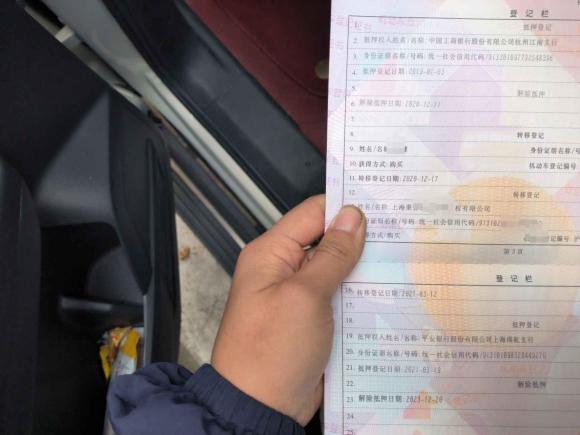 登 记 栏
1. 抵押登记
2. 抵押权人姓名/名称:中国工商银行股份有限公司杭州江南支行
3. 身份证明名称/号码:统一社会信用代码/
4. 抵押登记日期:
5. 解除抵押
6. 解除抵押日期:2020-12-
7.
8. 转移登记
9. 姓名/名 身份证明名称/号
10. 获得方式:购买 机动车登记编
11. 转移登记日期:2020-12-17
12. 转移登记
姓名/名称:上海 有限公司
份证明名称/号码:统一社会信用代码/91310
得方式:购买 登记编号 沪
第 3 页
登 记 栏
16. 转移登记日期:2021-03-12
17.
18. 抵押登记
19. 抵押权人姓名/名称:平安银行股份有限公司上海 支行
20. 身份证明名称/号码:统一社会信用代码/
21. 抵押登记日期:2021-03-
22. 解除抵押
23. 解除抵押日期:2023-12-20
24.
25.